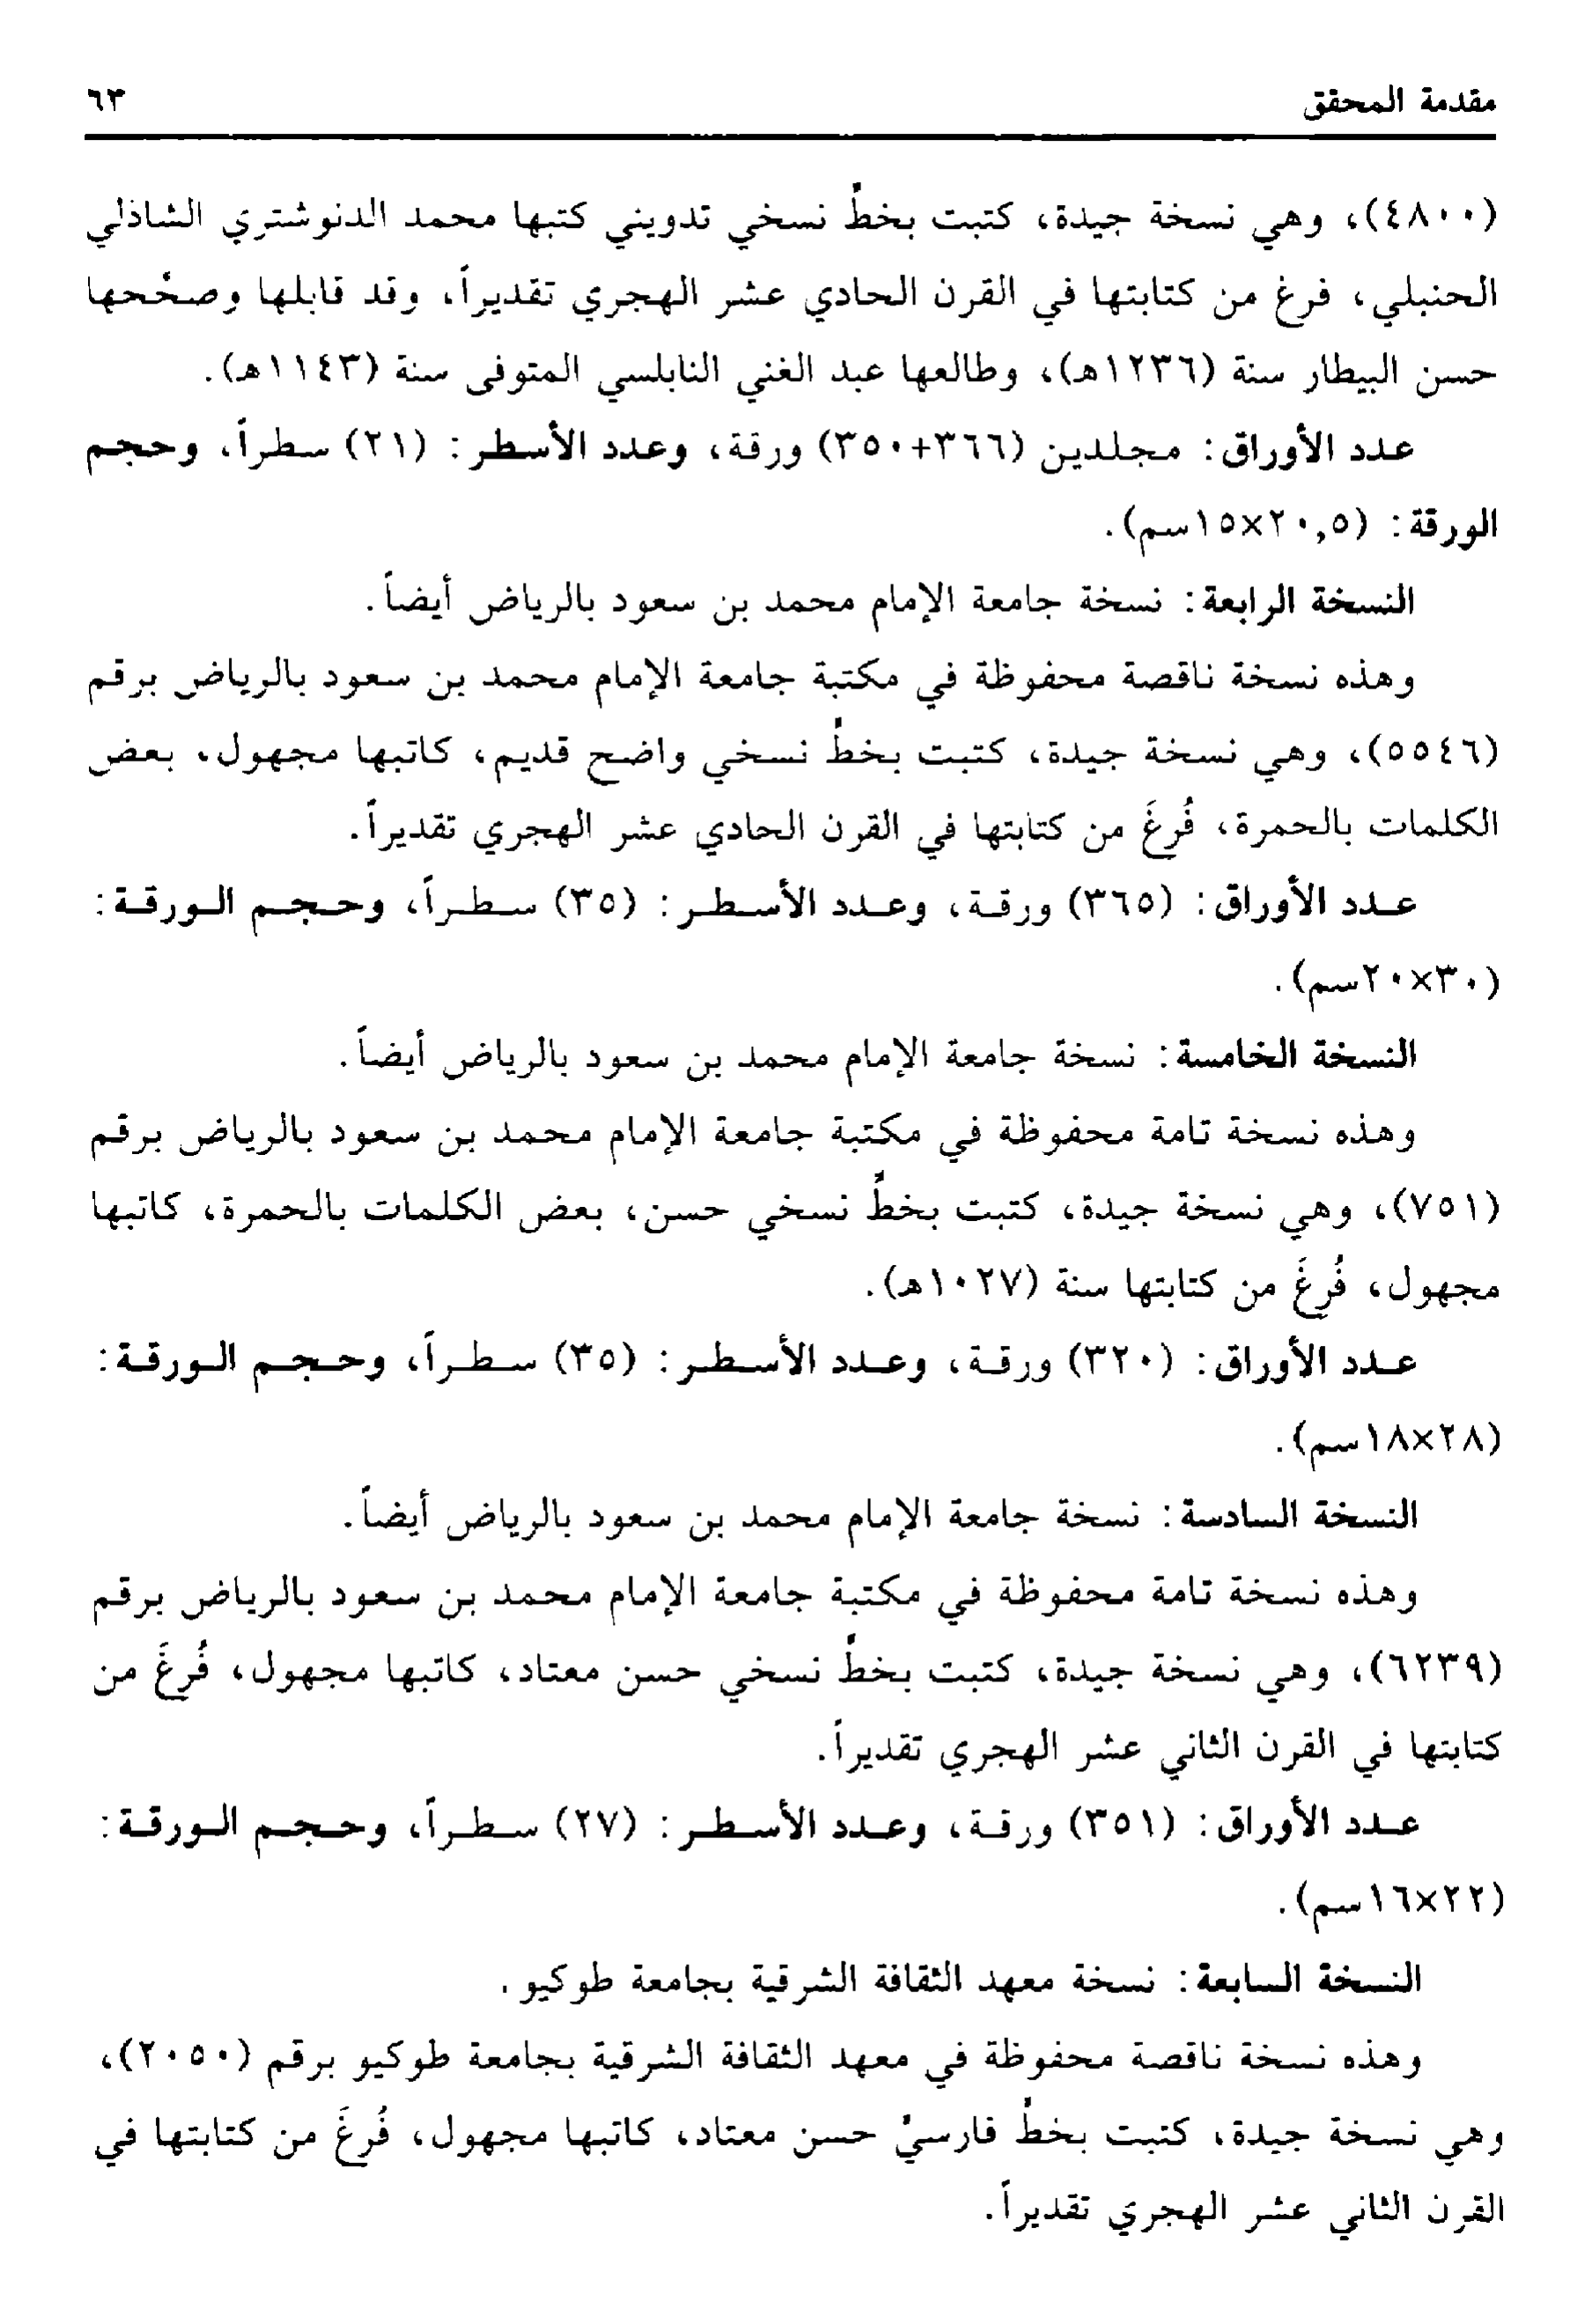 مقدمة المحقق ٦٣
(٤٨٠٠)، وهي نسخة جيدة، كتبت بخطٍّ نسخي تدويني كتبها محمد الدنوشتري الشاذلي
الحنبلي، فرغ من كتابتها في القرن الحادي عشر الهجري تقديراً، وقد قابلها وصحّحها
حسن البيطار سنة (١٢٣٦هـ)، وطالعها عبد الغني النابلسي المتوفى سنة (١١٤٣هـ).
عدد الأوراق: مجلدين (٣٦٦+٣٥٠) ورقة، وعدد الأسطر: (٢١) سطراً، وحجم
الورقة: (٢٠,٥×١٥سم).
النسخة الرابعة: نسخة جامعة الإمام محمد بن سعود بالرياض أيضاً.
وهذه نسخة ناقصة محفوظة في مكتبة جامعة الإمام محمد بن سعود بالرياض برقم
(٥٥٤٦)، وهي نسخة جيدة، كتبت بخطٍّ نسخي واضح قديم، كاتبها مجهول، بعض
الكلمات بالحمرة، فُرِغَ من كتابتها في القرن الحادي عشر الهجري تقديراً.
عـدد الأوراق: (٣٦٥) ورقـة، وعـدد الأسـطـر: (٣٥) سـطـراً، وحـجـم الـورقـة:
(٣٠×٢٠سم).
النسخة الخامسة: نسخة جامعة الإمام محمد بن سعود بالرياض أيضاً.
وهذه نسخة تامة محفوظة في مكتبة جامعة الإمام محمد بن سعود بالرياض برقم
(٧٥١)، وهي نسخة جيدة، كتبت بخطٍّ نسخي حسن، بعض الكلمات بالحمرة، كاتبها
مجهول، فُرِغَ من كتابتها سنة (١٠٢٧هـ).
عـدد الأوراق: (٣٢٠) ورقـة، وعـدد الأسـطـر: (٣٥) سـطـراً، وحـجـم الـورقـة:
(٢٨×١٨سم).
النسخة السادسة: نسخة جامعة الإمام محمد بن سعود بالرياض أيضاً.
وهذه نسخة تامة محفوظة في مكتبة جامعة الإمام محمد بن سعود بالرياض برقم
(٦٢٣٩)، وهي نسخة جيدة، كتبت بخطٍّ نسخي حسن معتاد، كاتبها مجهول، فُرِغَ من
كتابتها في القرن الثاني عشر الهجري تقديراً.
عـدد الأوراق: (٣٥١) ورقـة، وعـدد الأسـطـر: (٢٧) سـطـراً، وحـجـم الـورقـة:
(٢٢×١٦سم).
النسخة السابعة: نسخة معهد الثقافة الشرقية بجامعة طوكيو.
وهذه نسخة ناقصة محفوظة في معهد الثقافة الشرقية بجامعة طوكيو برقم (٢٠٥٠)،
وهي نسخة جيدة، كتبت بخطٍّ فارسيٍّ حسن معتاد، كاتبها مجهول، فُرِغَ من كتابتها في
القرن الثاني عشر الهجري تقديراً.